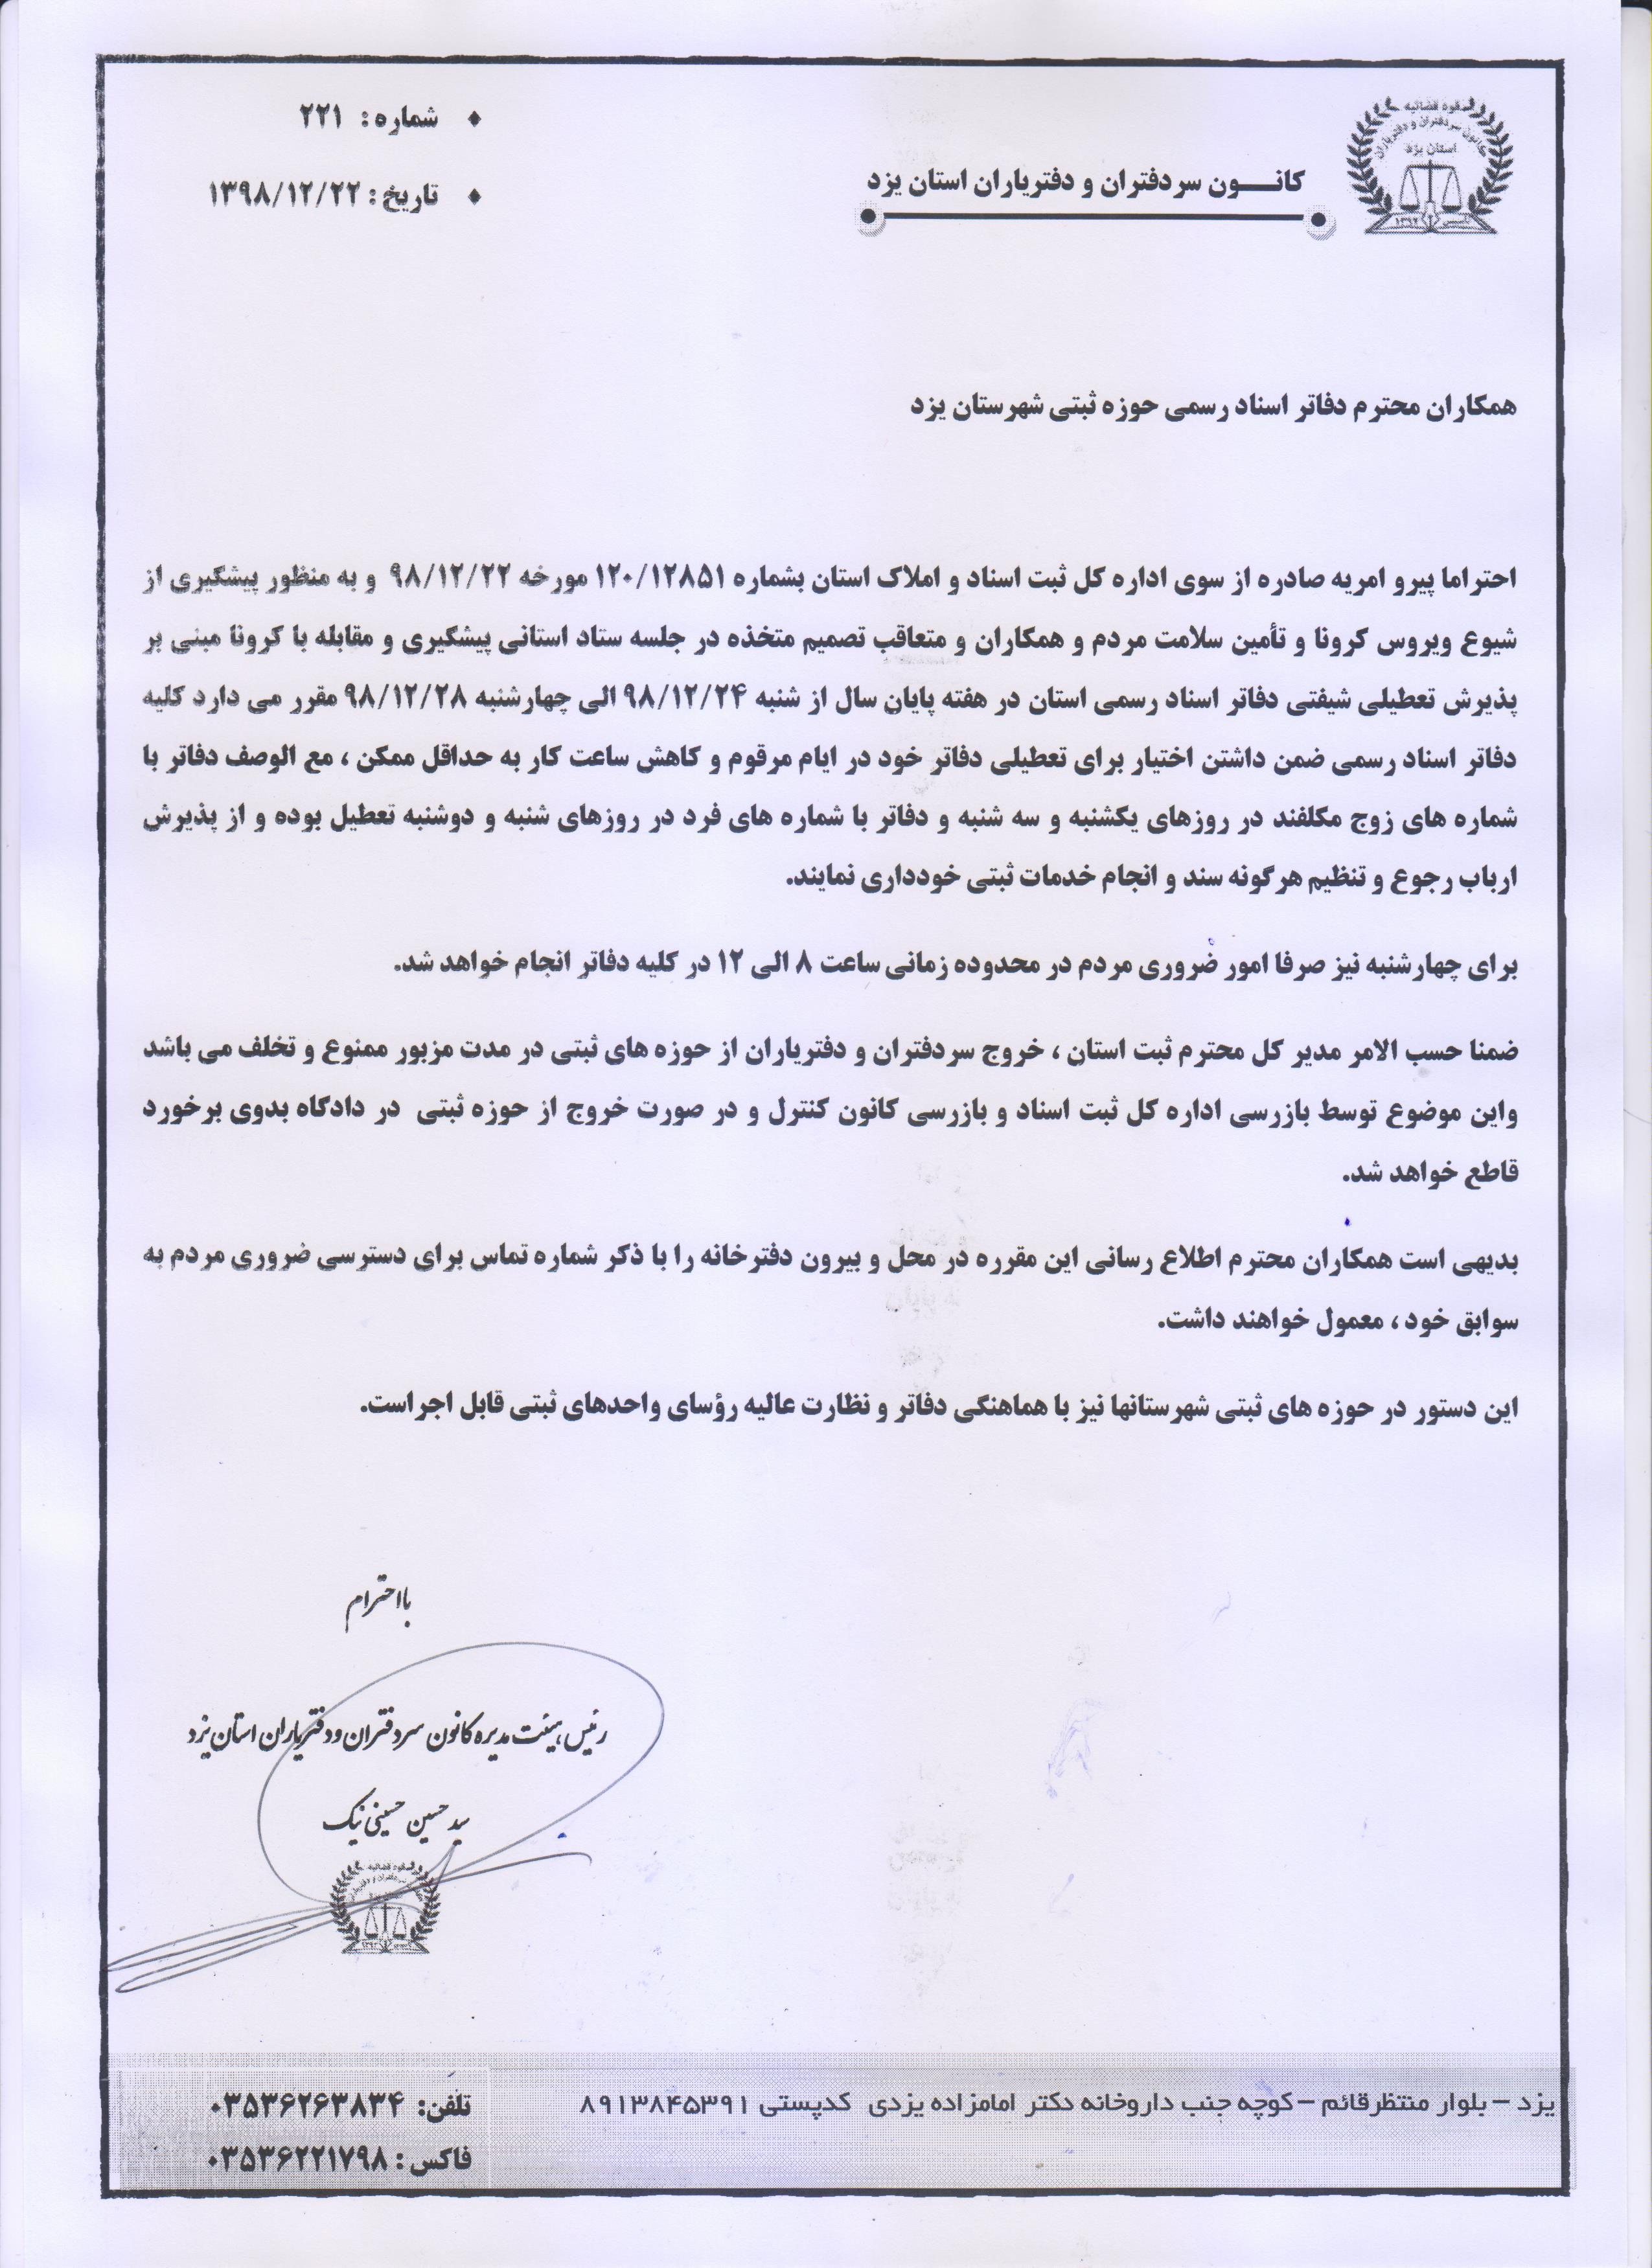 قوه قضائیه
کانون سردفتران و دفتریاران
استان یزد
تاسیس ۱۳۹۲
کانـــون سردفتران و دفتریاران استان یزد
شماره : ۲۲۱
تاریخ : ۱۳۹۸/۱۲/۲۲
همکاران محترم دفاتر اسناد رسمی حوزه ثبتی شهرستان یزد
احتراما پیرو امریه صادره از سوی اداره کل ثبت اسناد و املاک استان بشماره ۱۲۰/۱۲۸۵۱ مورخه ۹۸/۱۲/۲۲ و به منظور پیشگیری از
شیوع ویروس کرونا و تأمین سلامت مردم و همکاران و متعاقب تصمیم متخذه در جلسه ستاد استانی پیشگیری و مقابله با کرونا مبنی بر
پذیرش تعطیلی شیفتی دفاتر اسناد رسمی استان در هفته پایان سال از شنبه ۹۸/۱۲/۲۴ الی چهارشنبه ۹۸/۱۲/۲۸ مقرر می دارد کلیه
دفاتر اسناد رسمی ضمن داشتن اختیار برای تعطیلی دفاتر خود در ایام مرقوم و کاهش ساعت کار به حداقل ممکن ، مع الوصف دفاتر با
شماره های زوج مکلفند در روزهای یکشنبه و سه شنبه و دفاتر با شماره های فرد در روزهای شنبه و دوشنبه تعطیل بوده و از پذیرش
ارباب رجوع و تنظیم هرگونه سند و انجام خدمات ثبتی خودداری نمایند.
برای چهارشنبه نیز صرفا امور ضروری مردم در محدوده زمانی ساعت ۸ الی ۱۲ در کلیه دفاتر انجام خواهد شد.
ضمنا حسب الامر مدیر کل محترم ثبت استان ، خروج سردفتران و دفتریاران از حوزه های ثبتی در مدت مزبور ممنوع و تخلف می باشد
واین موضوع توسط بازرسی اداره کل ثبت اسناد و بازرسی کانون کنترل و در صورت خروج از حوزه ثبتی در دادگاه بدوی برخورد
قاطع خواهد شد.
بدیهی است همکاران محترم اطلاع رسانی این مقرره در محل و بیرون دفترخانه را با ذکر شماره تماس برای دسترسی ضروری مردم به
سوابق خود ، معمول خواهند داشت.
این دستور در حوزه های ثبتی شهرستانها نیز با هماهنگی دفاتر و نظارت عالیه رؤسای واحدهای ثبتی قابل اجراست.
بااحترام
رئیس هیئت مدیره کانون سردفتران و دفتریاران استان یزد
سید حسین حسینی نیک
یزد – بلوار منتظرقائم – کوچه جنب داروخانه دکتر امامزاده یزدی کدپستی ۸۹۱۳۸۴۵۳۹۱
تلفن: ۰۳۵۳۶۲۶۳۸۳۴
فاکس : ۰۳۵۳۶۲۲۱۷۹۸